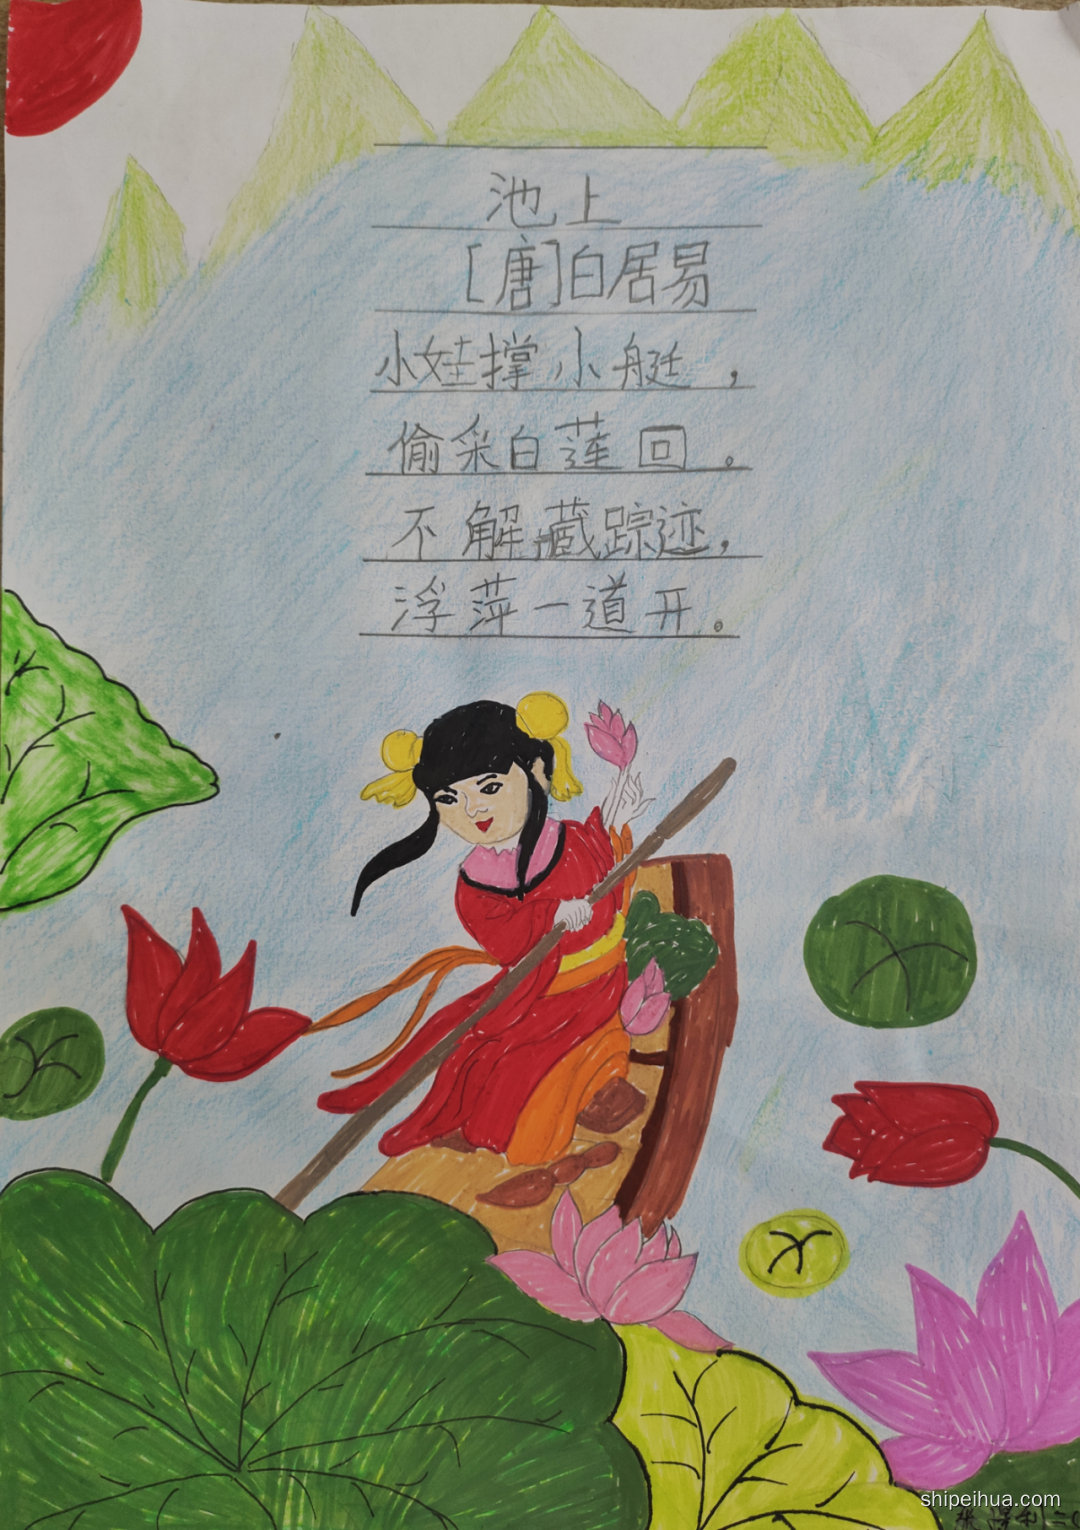 池上
[唐]白居易
小娃撑小艇，
偷采白莲回。
不解藏踪迹，
浮萍一道开。
shipeihua.com